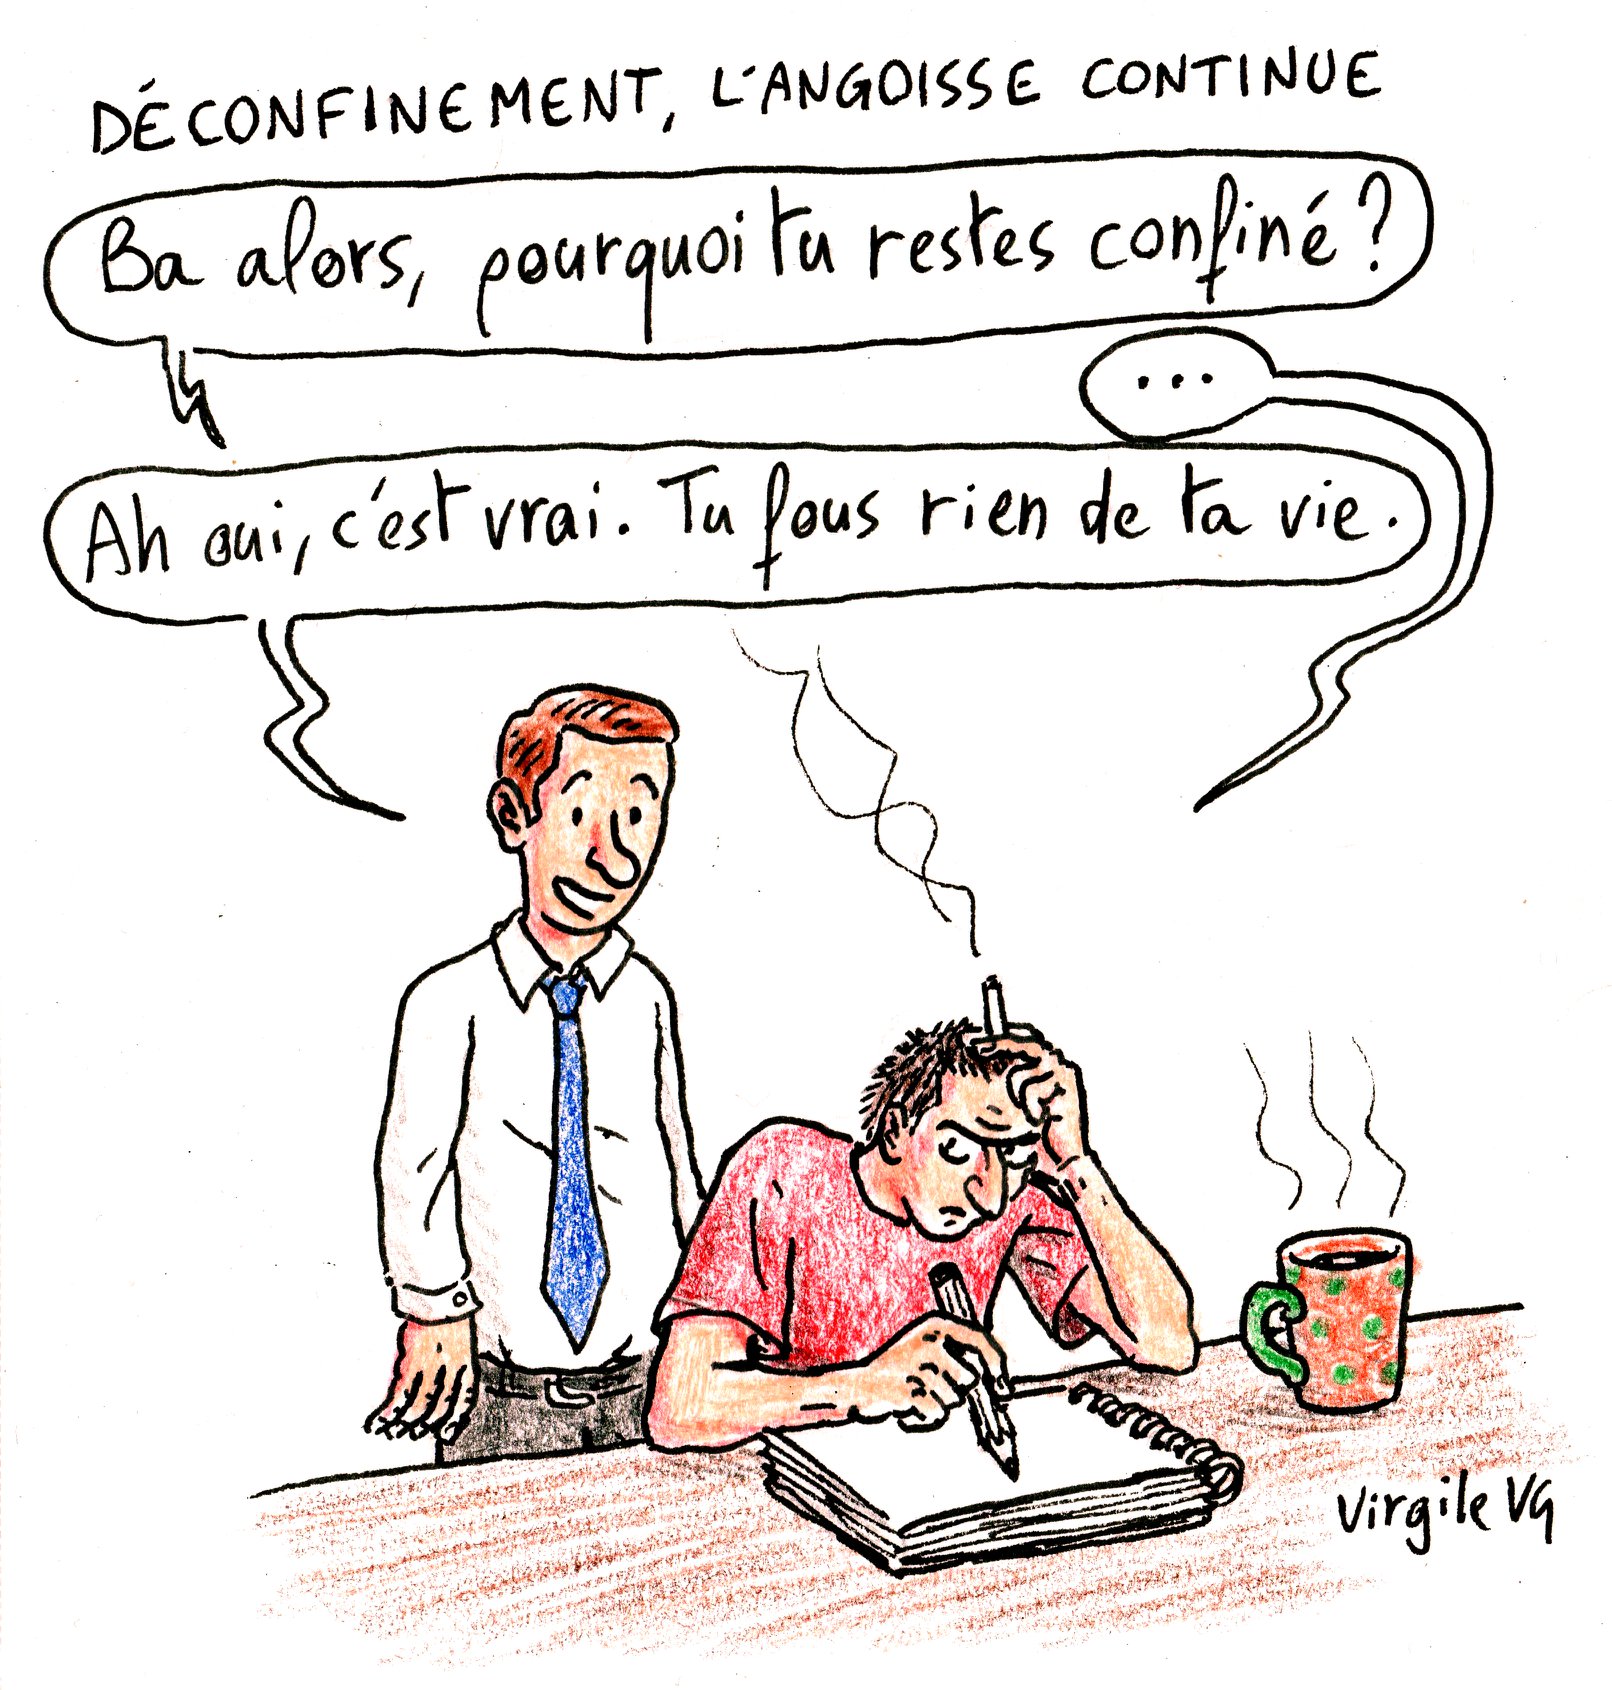 DÉCONFINEMENT, L'ANGOISSE CONTINUE
Ba alors, pourquoi tu restes confiné ?
...
Ah oui, c'est vrai. Tu fous rien de ta vie.
Virgile VG